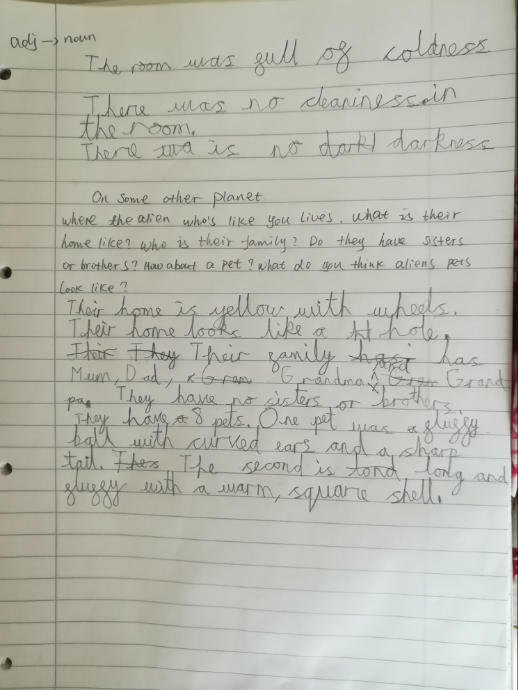 adj → noun
The room was full of coldness
There was no cleaniness in
the room.
There is no darkness
On some other planet
where the alien who's like you lives. What is their
home like? Who is their family? Do they have sisters
or brothers? How about a pet? What do you think aliens pets
look like?
Their home is yellow with wheels.
Their home looks like a hole.
Their They Their family has
Mum, Dad, Grandma, and Grand-
pa. They have no sisters or brothers.
They have 8 pets. One pet was a fluffy
ball with curved ears and a sharp
tail. The second is long and
fluffy with a warm, square shell.